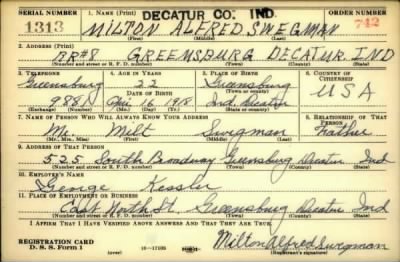 DECATUR CO. IND.
SERIAL NUMBER 1. NAME (Print) ORDER NUMBER
1313 MILTON ALFRED SWEGMAN 742
(First) (Middle) (Last)
2. ADDRESS (Print)
RR#8 GREENSBURG DECATUR, IND
(Number and street or R. F. D. number) (Town) (County) (State)
3. TELEPHONE 4. AGE IN YEARS 5. PLACE OF BIRTH 6. COUNTRY OF CITIZENSHIP
Greensburg 22 Greensburg
DATE OF BIRTH (Town or county) USA
988 16 1918 Ind. Decatur
(Exchange) (Number) (Mo.) (Day) (Yr.) (State or country)
7. NAME OF PERSON WHO WILL ALWAYS KNOW YOUR ADDRESS 8. RELATIONSHIP OF THAT PERSON
Mr. Milt Swegman Father
(Mr., Mrs., Miss) (First) (Middle) (Last)
9. ADDRESS OF THAT PERSON
525 South Broadway Greensburg Decatur Ind
(Number and street or R. F. D. number) (Town) (County) (State)
10. EMPLOYER'S NAME
George Kessler
11. PLACE OF EMPLOYMENT OR BUSINESS
East North St. Greensburg Decatur Ind
(Number and street or R. F. D. number) (Town) (County) (State)
I AFFIRM THAT I HAVE VERIFIED ABOVE ANSWERS AND THAT THEY ARE TRUE.
REGISTRATION CARD
D. S. S. FORM 1 (over) 16—17105 Milton Alfred Swegman
(Registrant's signature)